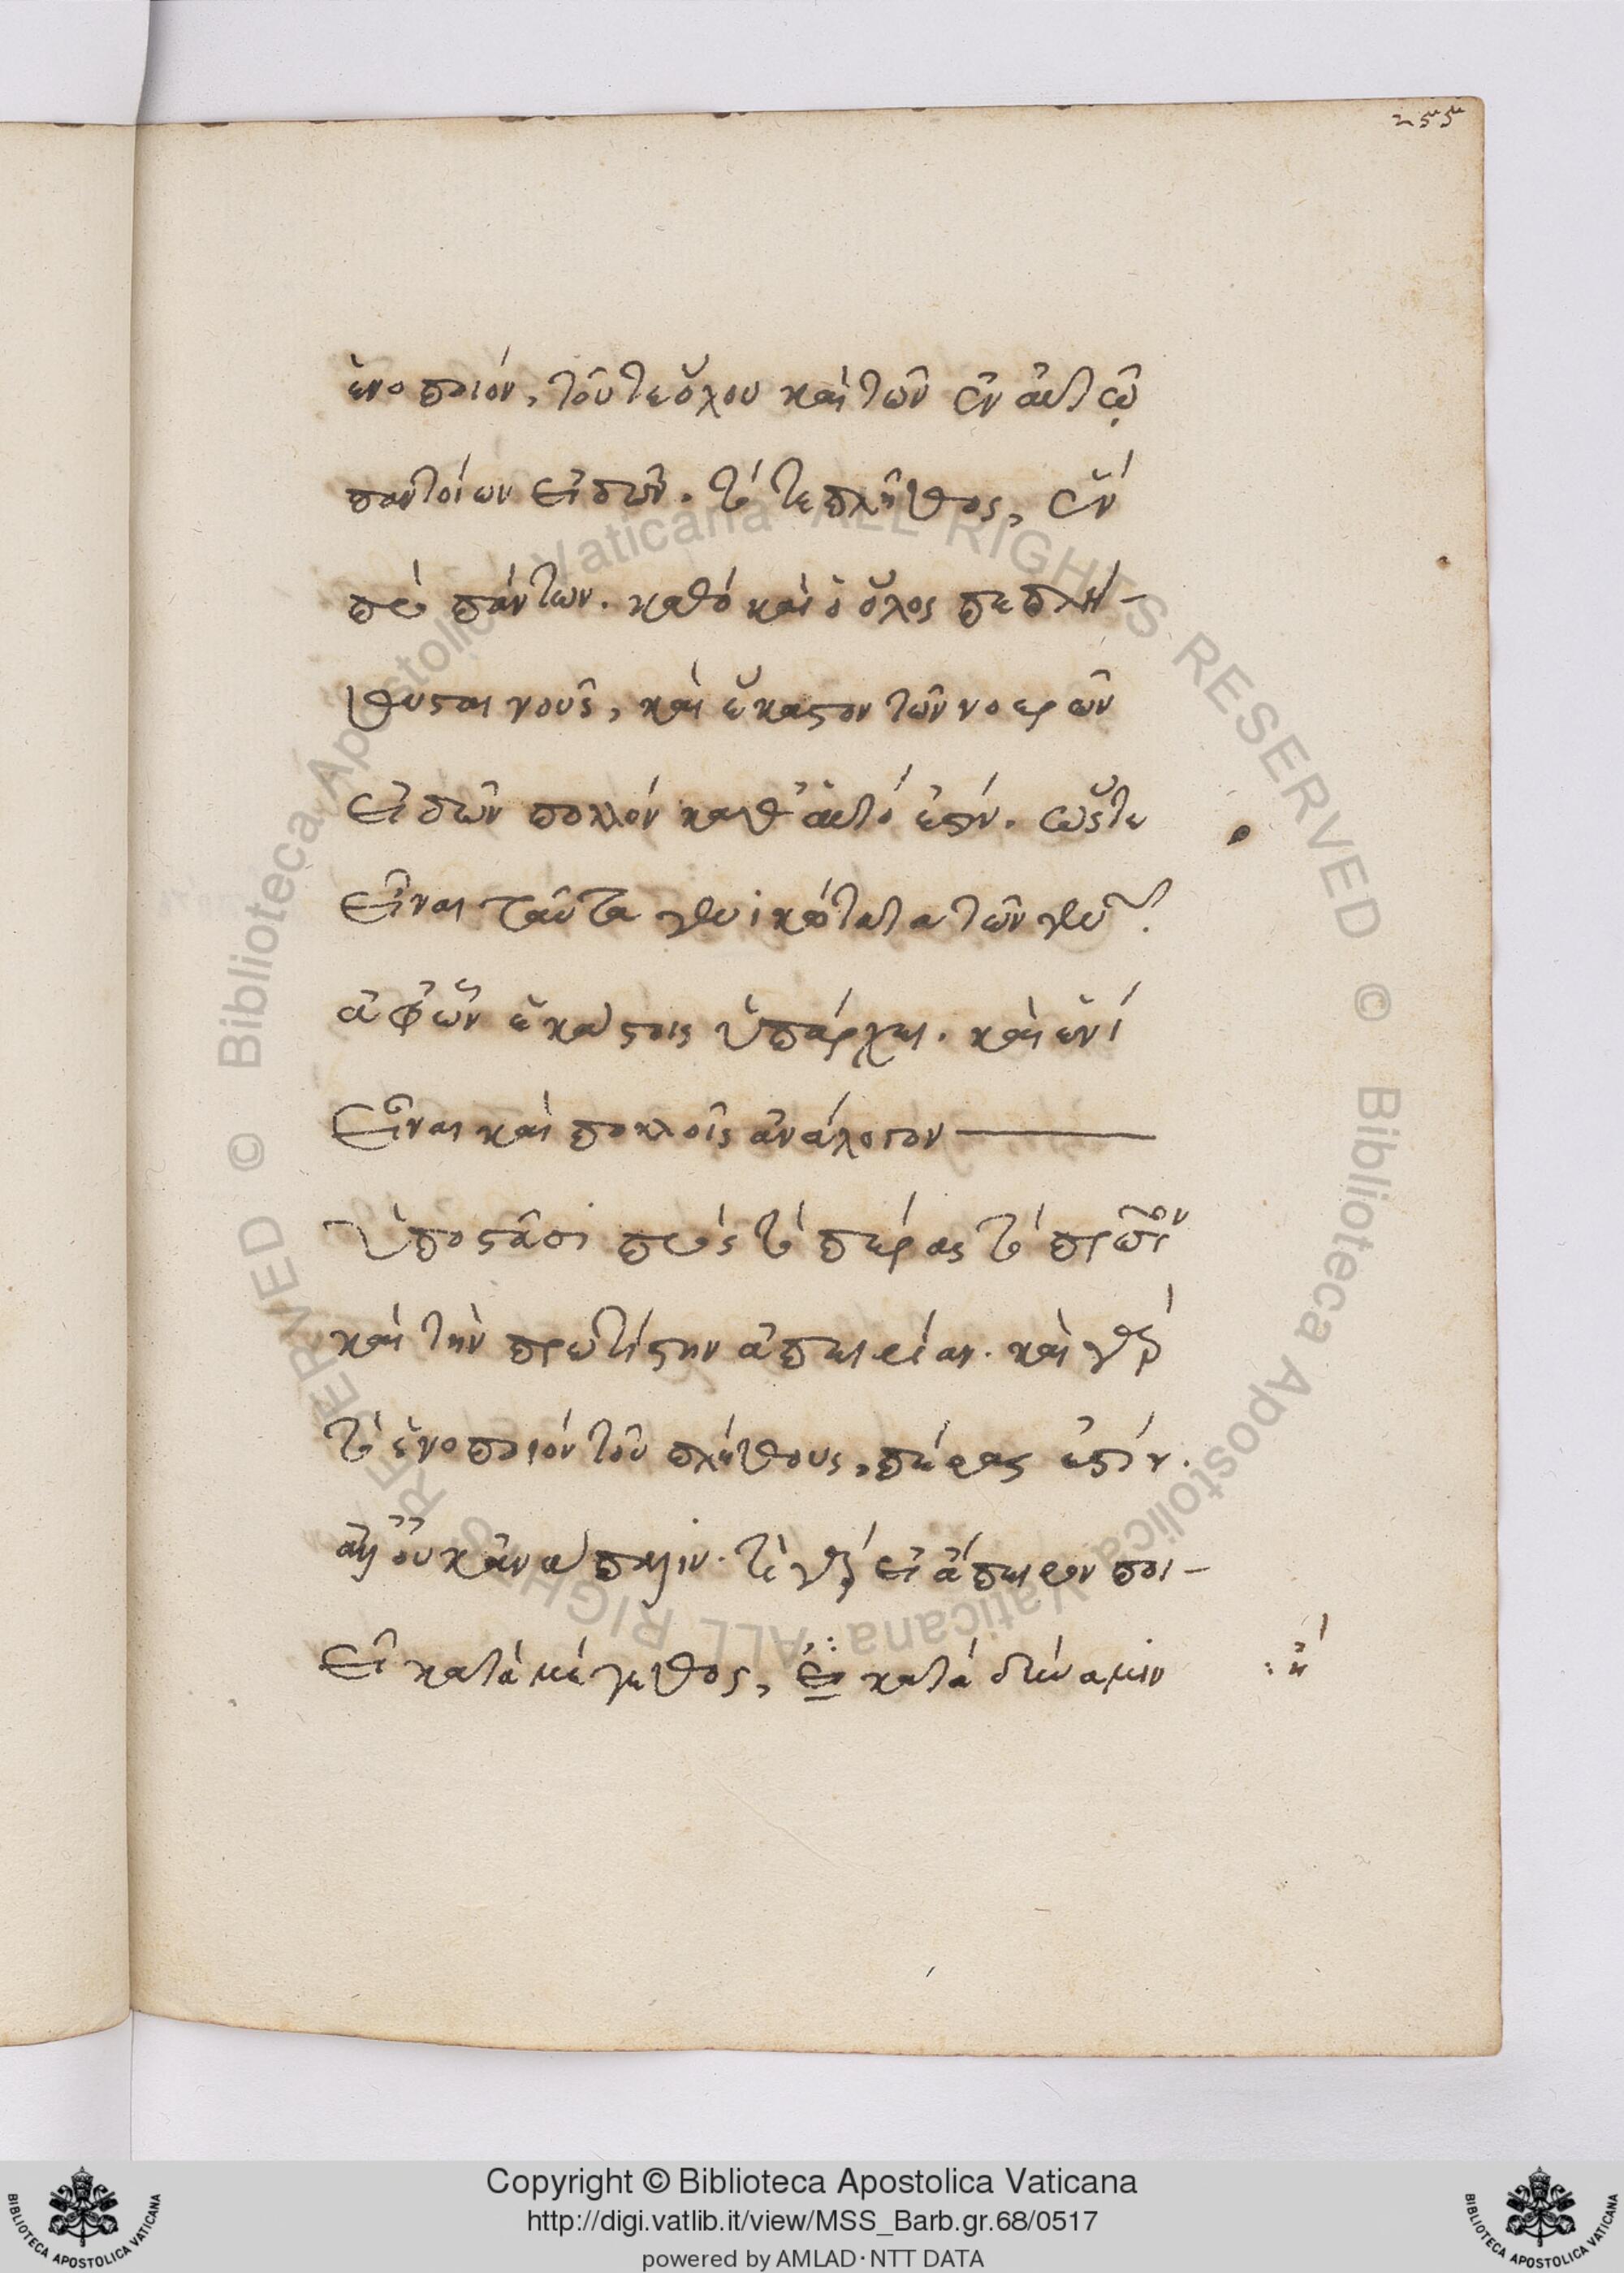 255
ἑνοποιόν, τοῦ τε ὅλου καὶ τῶν ἐν αὐτῷ
παντοίων εἰδῶν. τό τε πλῆθος, ἓν
πρὸ πάντων. καθὸ καὶ ὁ ὅλος πεπλή-
θυσται νοῦς, καὶ ἕκαστον τῶν νοερῶν
εἰδῶν πολλὸν καθ' αὑτό ἐστιν. ὥστε
εἶναι ταῦτα γενικώτατα τῶν γενῶν.
ἀφ' ὧν ἑκάστοις ὑπάρχει. καὶ ἑνὶ
εἶναι καὶ πολλοῖς ἀνάλογον
ὑποστᾶσι πρὸς τὸ πέρας τὸ πρῶτον
καὶ τὴν πρωτίστην ἀπειρίαν. καὶ γὰρ
τὸ ἑνοποιὸν τοῦ πλήθους, πέρας ἐστίν.
τὸ γὰρ εἰ ἄπειρον ποι-
εῖ κατὰ μέγεθος, εἰ κατὰ δύναμιν
: ἢ
Copyright © Biblioteca Apostolica Vaticana
http://digi.vatlib.it/view/MSS_Barb.gr.68/0517
powered by AMLAD · NTT DATA
BIBLIOTECA APOSTOLICA VATICANA
BIBLIOTECA APOSTOLICA VATICANA
© Biblioteca Apostolica Vaticana ALL RIGHTS RESERVED © Biblioteca Apostolica Vaticana ALL RIGHTS RESERVED